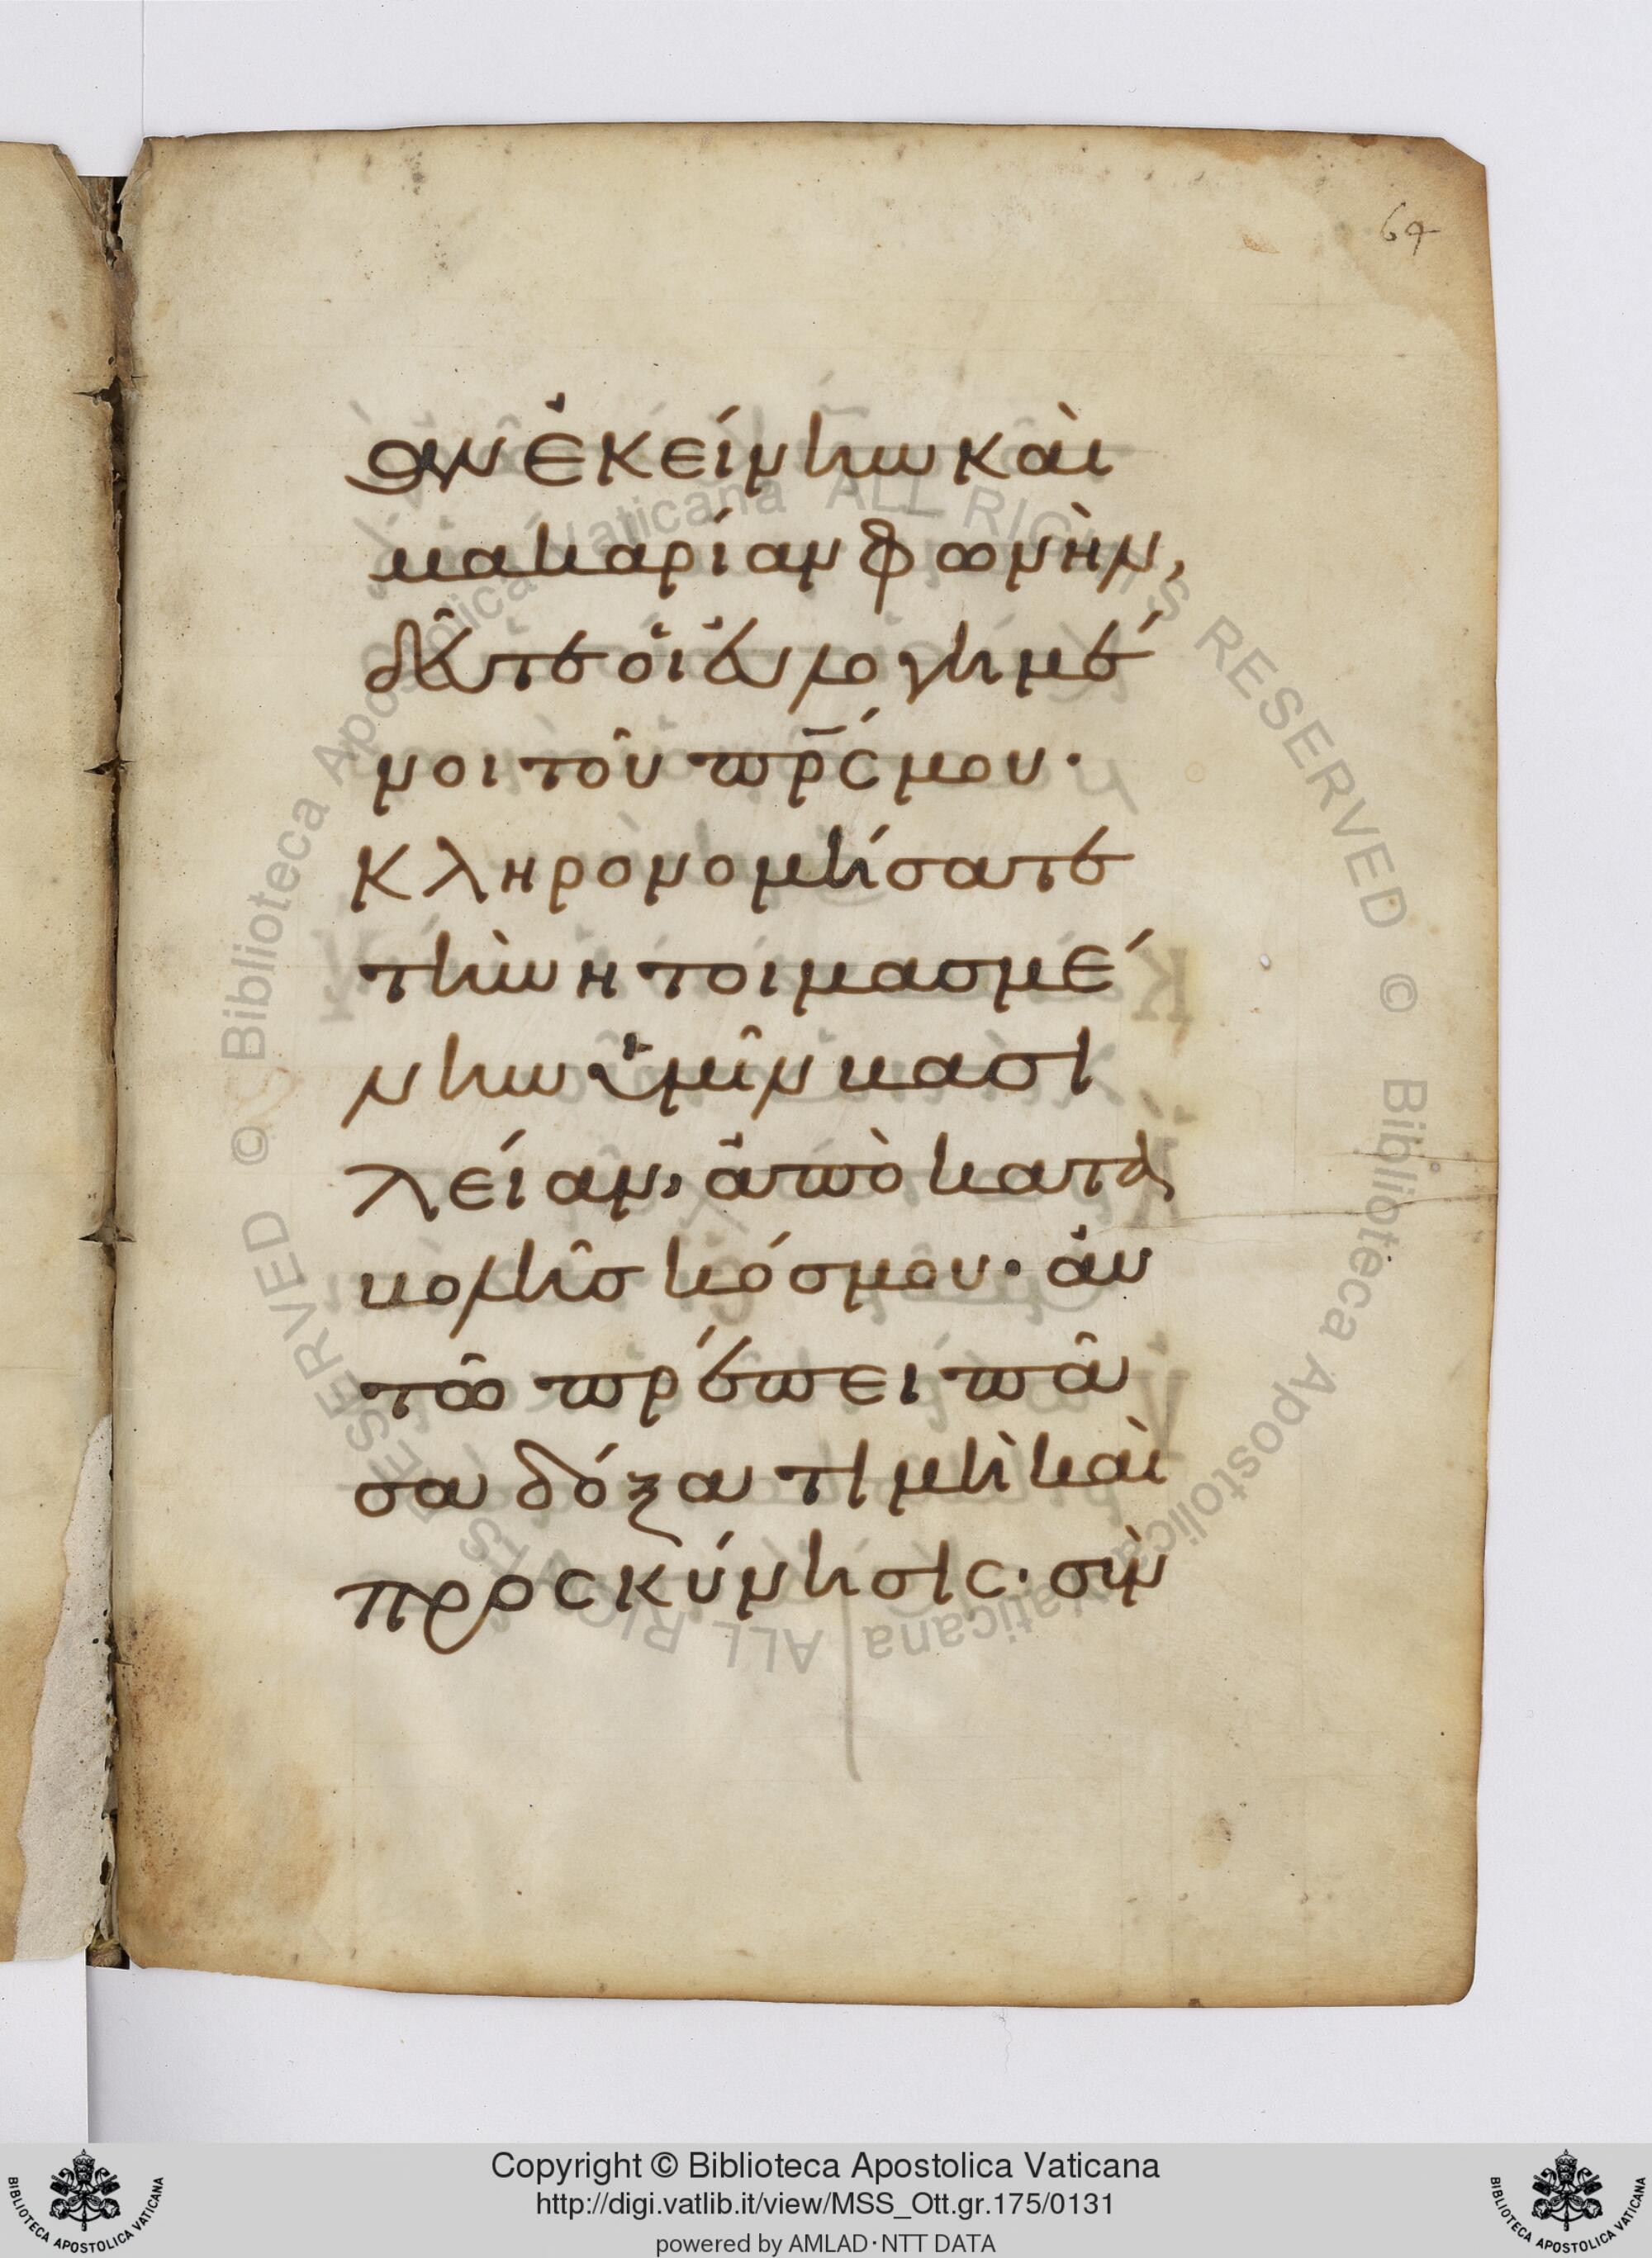 64
αν ἐκείνην καὶ
μακαρίαν φωνὴν,
δεῦτε οἱ εὐλογημέ
νοι τοῦ πρ̅ς μου·
κληρονομήσατε
τὴν ητοιμασμέ
νην ὑμῖν βασι
λείαν, ἀπὸ κατα
βολῆσ κόσμου· αὐ
τῶ πρέπει πᾶ
σα δόξα τιμὴ καὶ
προσκύνησις· σὺν
Copyright © Biblioteca Apostolica Vaticana
http://digi.vatlib.it/view/MSS_Ott.gr.175/0131
powered by AMLAD·NTT DATA
BIBLIOTECA APOSTOLICA VATICANA
BIBLIOTECA APOSTOLICA VATICANA
© Biblioteca Apostolica Vaticana ALL RIGHTS RESERVED © Biblioteca Apostolica Vaticana ALL RIGHTS RESERVED